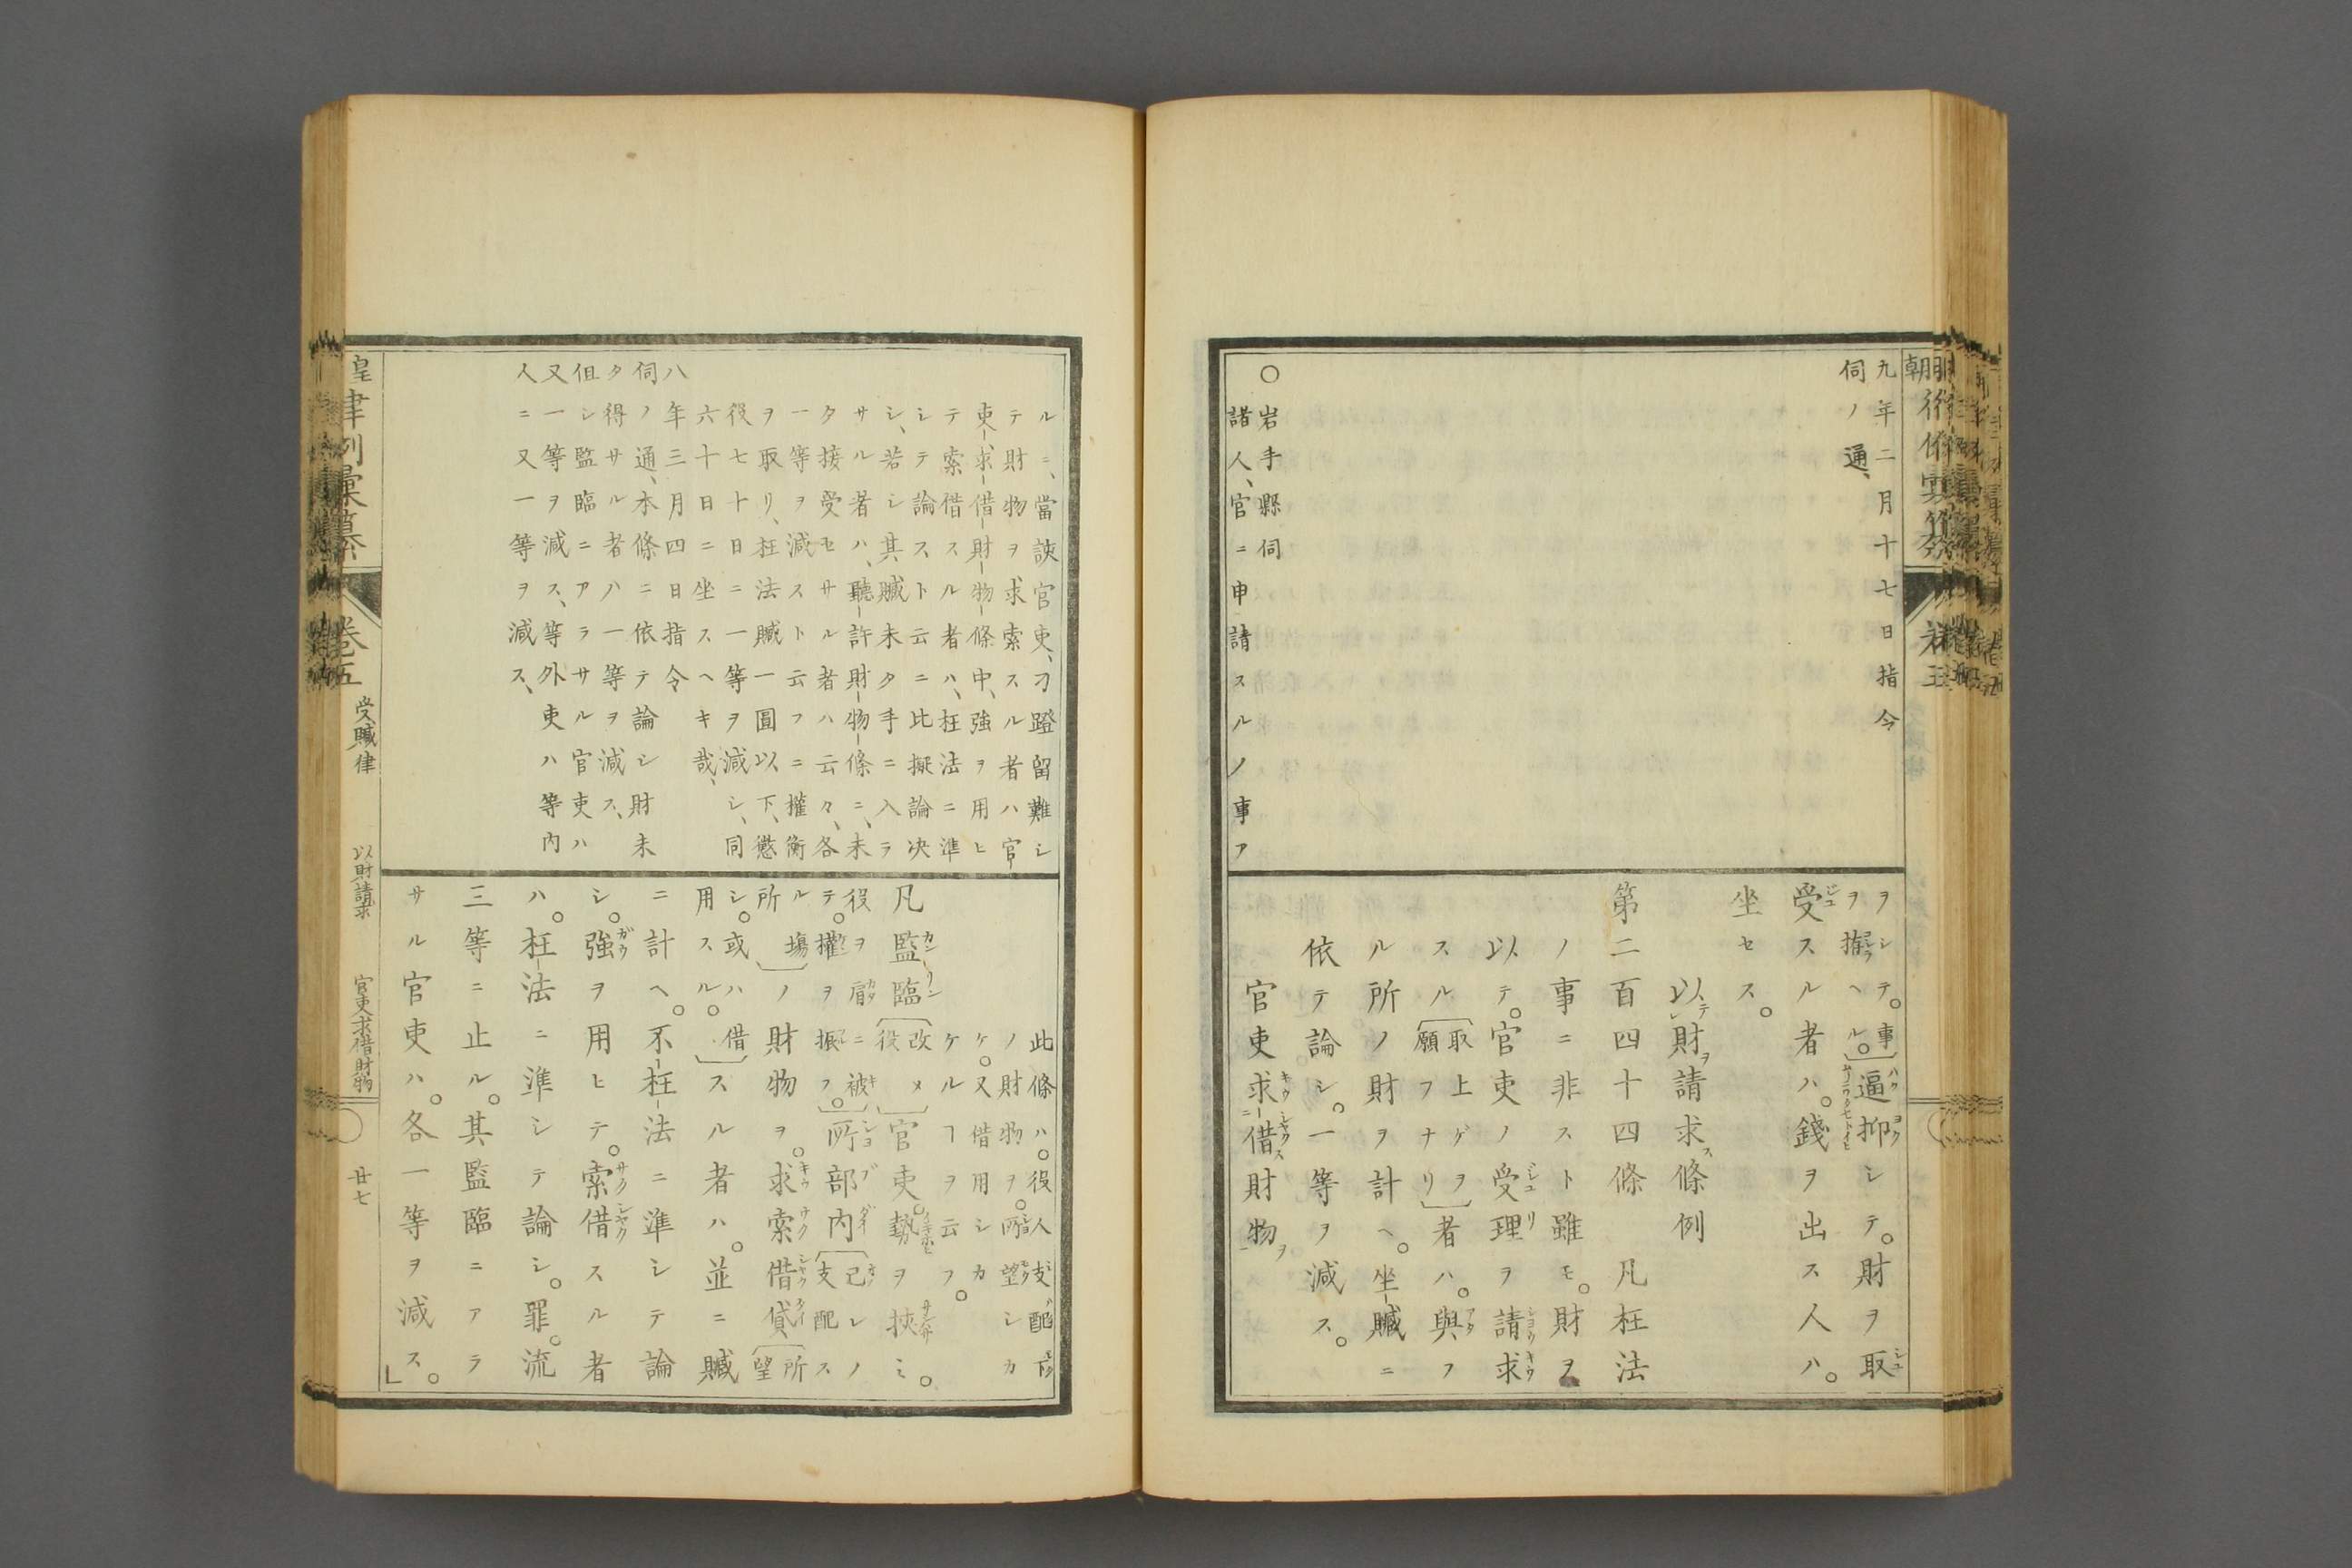 九年二月十七日指令
伺ノ通、
○岩手縣伺
諸人、官ニ申請スルノ事ア
ヲシテ。事
ヲ拵ヘル。逼抑シテ。財ヲ取
受スル者ハ。錢ヲ出ス人ハ。
坐セス。
以財請求條例
第二百四十四條 凡枉法
ノ事ニ非スト雖モ。財ヲ
以テ。官吏ノ受理ヲ請求
スル取上ゲヲ願フナリ者ハ。與フ
ル所ノ財ヲ計ヘ。坐贓ニ
依テ論シ。一等ヲ減ス。
官吏求借財物
ルニ、當該官吏、刁蹬留難シ
テ財物ヲ求索スル者ハ官
吏求借財物條中、強ヲ用ヒ
テ索借スル者ハ、枉法ニ準
シテ論スト云ニ比擬論决
シ、若シ其贓未タ手ニ入ラ
サル者ハ、聽許財物條ニ、未
タ接受セサル者ハ云々、各
一等ヲ減スト云フニ權衡
ヲ取リ、枉法贓一圓以下、懲
役七十日ニ一等ヲ減シ、同
六十日ニ坐スヘキ哉、
八年三月四日指令
伺ノ通、本條ニ依テ論シ財未
タ得サル者ハ一等ヲ減ス、
但シ監臨ニアラサル官吏ハ
又一等ヲ減ス、等外吏ハ等內
人ニ又一等ヲ減ス、
此條ハ。役人支配下
ノ財物ヲ。所望シカ
ケ。又借用シカ
ケルヿヲ云フ。
凡監臨改メ役官吏。勢ヲ挾ミ。
役ヲ肩ニ被テ。權ヲ振フ。所部內己レノ支配ス
ル場所ノ財物ヲ。求索借貸所望
シ。或ハ借用スル。スル者ハ。並ニ贓
ニ計ヘ。不枉法ニ準シテ論
シ。強ヲ用ヒテ。索借スル者
ハ。枉法ニ準シテ論シ。罪。流
三等ニ止ル。其監臨ニアラ
サル官吏ハ。各一等ヲ減ス。
皇律例彙纂 卷五 受贓律 以財請求 官吏求借財物 廿七